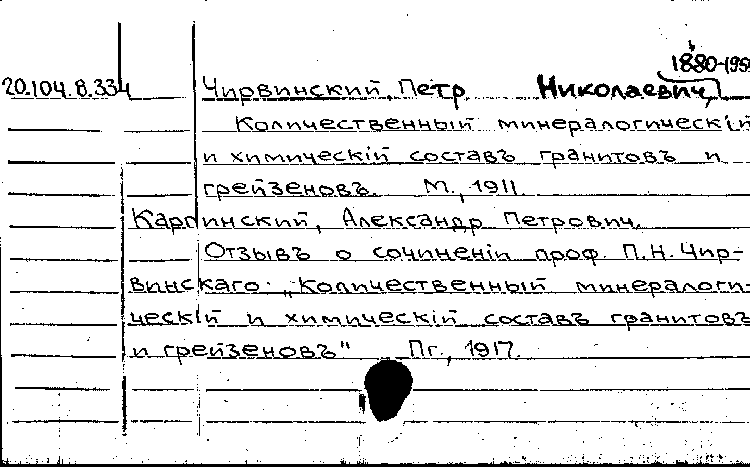 1880-195
20.104.8.334 Чирвинский, Петр Николаевич,
Количественный минералогическій
и химическій составъ гранитовъ и
грейзеновъ. М., 1911.
Карпинский, Александр Петрович.
Отзывъ о сочиненіи проф. П.Н. Чир-
винскаго: „Количественный минералоги-
ческій и химическій составъ гранитовъ
и грейзеновъ" Пг., 1917.